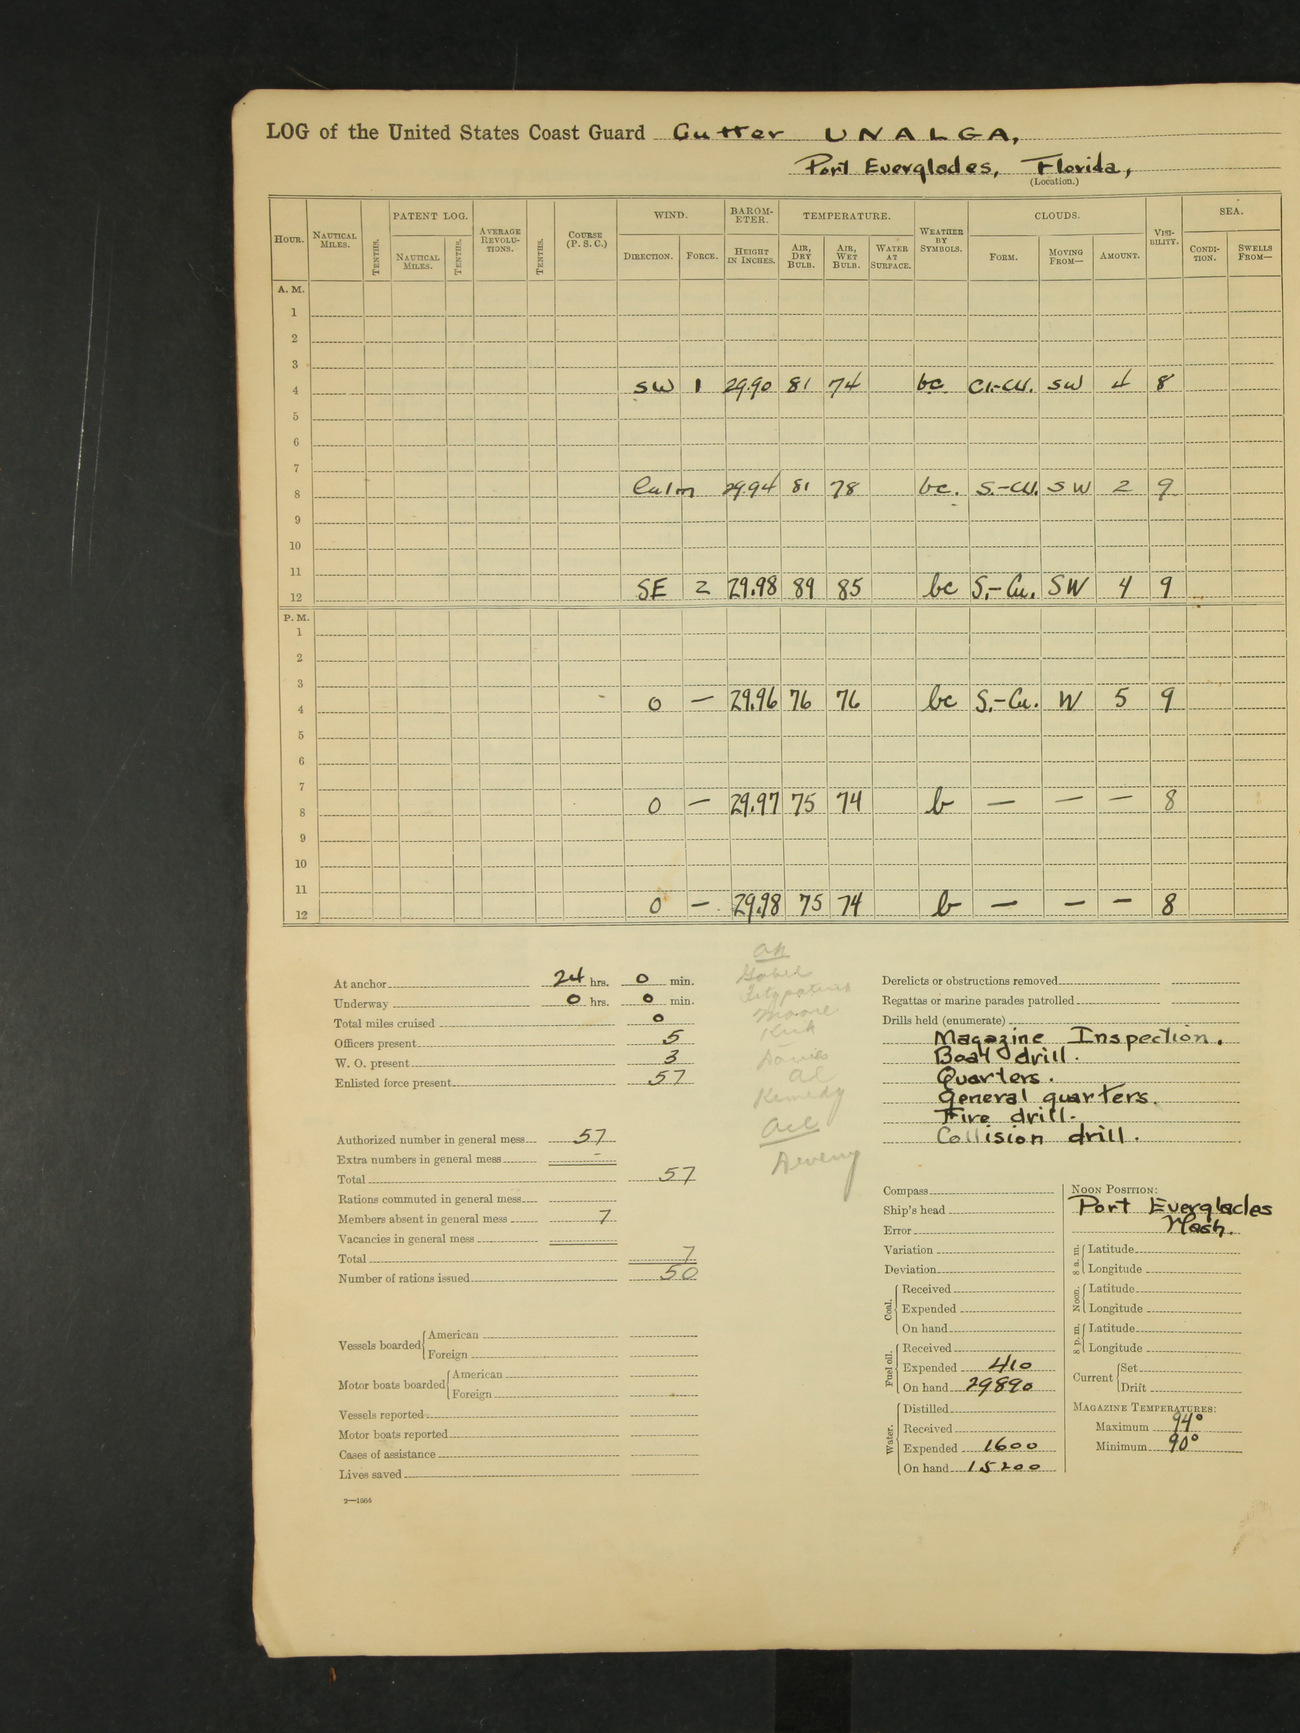 LOG of the United States Coast Guard Cutter UNALGA,
Port Everglades, Florida,
(Location.)
HOUR. NAUTICAL MILES. TENTHS. PATENT LOG. NAUTICAL MILES. TENTHS. AVERAGE REVOLUTIONS. TENTHS. COURSE (P. S. C.) WIND. DIRECTION. FORCE. BAROMETER. HEIGHT IN INCHES. TEMPERATURE. AIR, DRY BULB. AIR, WET BULB. WATER AT SURFACE. WEATHER BY SYMBOLS. CLOUDS. FORM. MOVING FROM— AMOUNT. VISIBILITY. SEA. CONDITION. SWELLS FROM—
A. M.
1
2
3
4 SW 1 29.90 81 74 bc Ci.-Cu. SW 4 8
5
6
7
8 Calm 29.94 81 78 bc. S.-Cu. SW 2 9
9
10
11
12 SE 2 29.98 89 85 bc S.-Cu. SW 4 9
P. M.
1
2
3
4 0 — 29.96 76 76 bc S.-Cu. W 5 9
5
6
7
8 0 — 29.97 75 74 b — — — 8
9
10
11
12 0 — 29.98 75 74 b — — — 8
At anchor 24 hrs. 0 min.
Underway 0 hrs. 0 min.
Total miles cruised 0
Officers present 5
W. O. present 3
Enlisted force present 57
Authorized number in general mess 57
Extra numbers in general mess -
Total 57
Rations commuted in general mess
Members absent in general mess 7
Vacancies in general mess
Total 7
Number of rations issued 50
Vessels boarded American
Foreign
Motor boats boarded American
Foreign
Vessels reported
Motor boats reported
Cases of assistance
Lives saved
2—1664
Fitzpatrick
Moore
Kirk
Davis
Kennedy
Derelicts or obstructions removed
Regattas or marine parades patrolled
Drills held (enumerate)
Magazine Inspection.
Boat drill.
Quarters.
General quarters.
Fire drill.
Collision drill.
Compass
Ship's head
Error
Variation
Deviation
Coal. Received
Expended
On hand
Fuel oil. Received
Expended 410
On hand 29890
Water. Distilled
Received
Expended 1600
On hand 15200
NOON POSITION:
Port Everglades
8 a. m. Latitude
Longitude
Noon. Latitude
Longitude
8 p. m. Latitude
Longitude
Current Set
Drift
MAGAZINE TEMPERATURES:
Maximum 94°
Minimum 90°